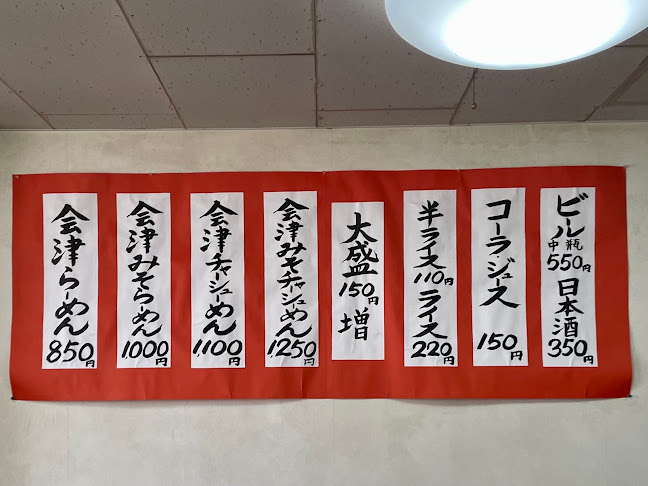 会津らーめん
850円
会津みそらーめん
1000円
会津チャーシューめん
1,100円
会津みそチャーシューめん
1250円
大盛
150円
増
半ライス
110円
ライス
220円
コーラ・ジュース
150円
ビール
中瓶
550円
日本酒
350円